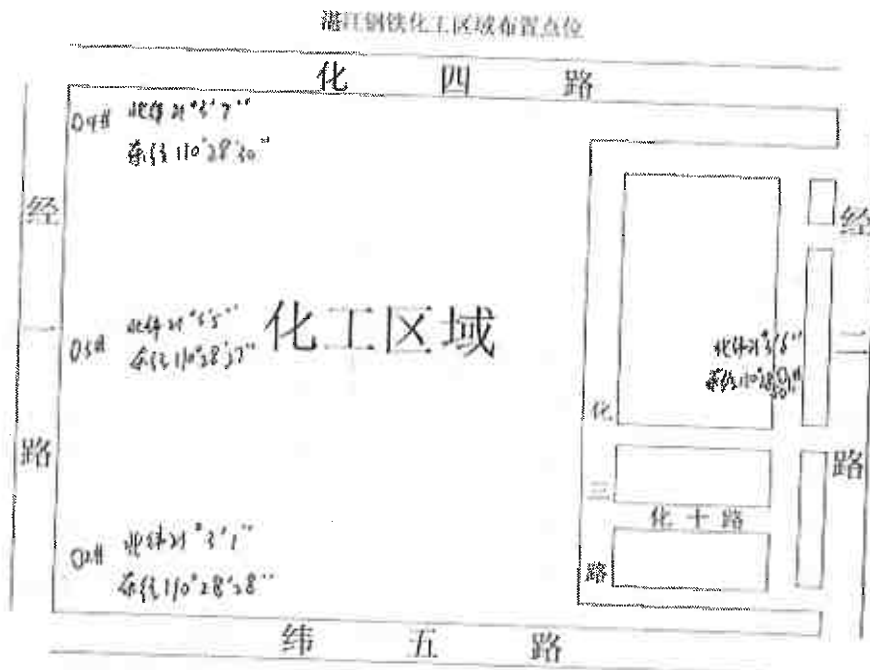 湛江钢铁化工区域布置点位
化四路
O4# 北纬21°3'7"
东经110°28'30"
经一路
经二路
O3# 北纬21°3'5"
东经110°28'27"
化工区域
北纬21°3'6"
化三路
化十路
O2# 北纬21°3'1"
东经110°28'28"
纬五路